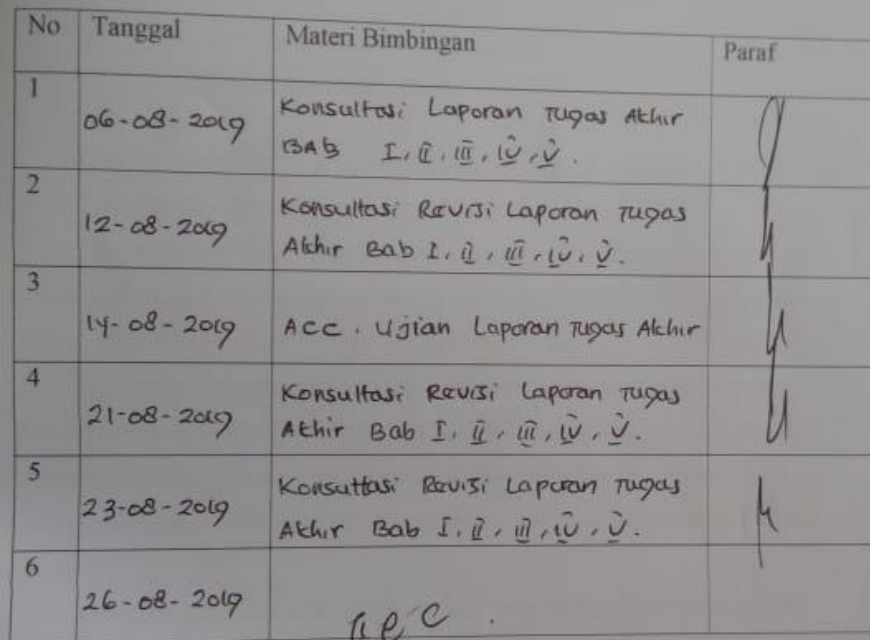 No Tanggal Materi Bimbingan Paraf
1
06-08-2019 Konsultasi Laporan Tugas Akhir
BAB I, II, III, IV, V.
2
12-08-2019 Konsultasi Revisi Laporan Tugas
Akhir Bab I, II, III, IV, V.
3
14-08-2019 ACC. Ujian Laporan Tugas Akhir
4
21-08-2019 Konsultasi Revisi Laporan Tugas
Akhir Bab I, II, III, IV, V.
5
23-08-2019 Konsultasi Revisi Laporan Tugas
Akhir Bab I, II, III, IV, V.
6
26-08-2019